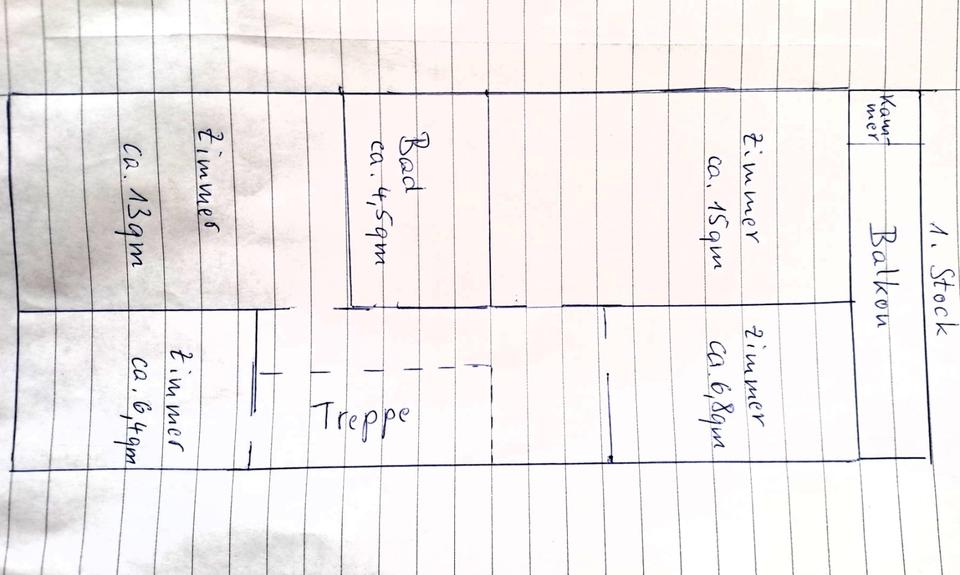 1. Stock
Kamm-
mer
Balkon
Zimmer
ca. 15qm
Zimmer
ca. 6,8qm
Bad
ca. 4,5qm
Treppe
Zimmer
ca. 13qm
Zimmer
ca. 6,4qm